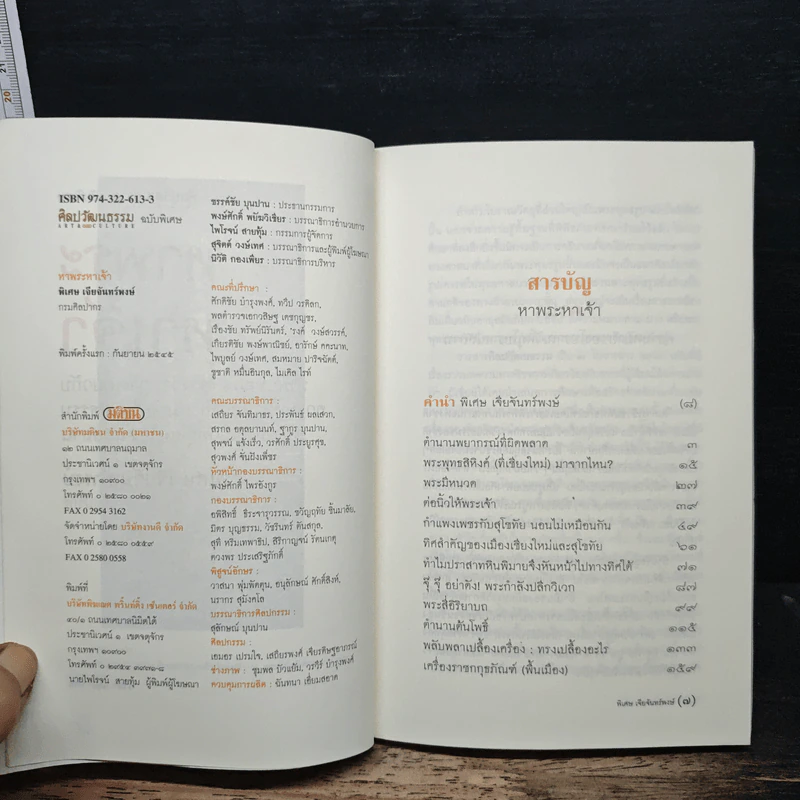 ISBN 974-322-613-3
ศิลปวัฒนธรรม ฉบับพิเศษ
ART & CULTURE
หาพระหาเจ้า
พิเศษ เจียจันทร์พงษ์
กรมศิลปากร
พิมพ์ครั้งแรก : กันยายน ๒๕๔๕
สำนักพิมพ์ มติชน
บริษัทมติชน จำกัด (มหาชน)
๑๒ ถนนเทศบาลนฤมาล
ประชานิเวศน์ ๑ เขตจตุจักร
กรุงเทพฯ ๑๐๙๐๐
โทรศัพท์ ๐ ๒๕๘๐ ๐๐๒๑
FAX 0 2954 3162
จัดจำหน่ายโดย บริษัทงานดี จำกัด
โทรศัพท์ ๐ ๒๕๘๐ ๐๕๕๙
FAX 0 2580 0558
พิมพ์ที่
บริษัทพิฆเณศ พริ้นท์ติ้ง เซ็นเตอร์ จำกัด
๔๐/๑ ถนนเทศบาลนิมิตใต้
ประชานิเวศน์ ๑ เขตจตุจักร
กรุงเทพฯ ๑๐๙๐๐
โทรศัพท์ ๐ ๒๙๕๔ ๓๓๓๑-๘
นายไพโรจน์ สายทุ้ม ผู้พิมพ์ผู้โฆษณา
ขรรค์ชัย บุนปาน : ประธานกรรมการ
พงษ์ศักดิ์ พยัฆวิเชียร : บรรณาธิการอำนวยการ
ไพโรจน์ สายทุ้ม : กรรมการผู้จัดการ
สุจิตต์ วงษ์เทศ : บรรณาธิการและผู้พิมพ์ผู้โฆษณา
นิวัติ กองเพียร : บรรณาธิการบริหาร
คณะที่ปรึกษา :
ศักดิชัย บำรุงพงศ์, ทวีป วรดิลก,
พลตำรวจเอกวสิษฐ เดชกุญชร,
เรืองชัย ทรัพย์นิรันดร์, 'รงค์ วงษ์สวรรค์,
เกียรติชัย พงษ์พาณิชย์, อารักษ์ คคะนาท,
ไพบูลย์ วงษ์เทศ, สมหมาย ปาริจฉัตต์,
ชูชาติ หมื่นอินกุล, ไมเคิล ไรท์
คณะบรรณาธิการ :
เสถียร จันทิมาธร, ประพันธ์ ผลเสวก,
สรกล อดุลยานนท์, ฐากูร บุนปาน,
สุพจน์ แจ้งเร็ว, วรศักดิ์ ประยูรศุข,
สุวพงศ์ จั่นฝังเพ็ชร
หัวหน้ากองบรรณาธิการ :
พงษ์ศักดิ์ ไพรอังกูร
กองบรรณาธิการ :
อพิสิทธิ์ ธีระจารุวรรณ, ขวัญฤทัย ชื่นมาลัย,
มิตร บุญธรรม, วัชรินทร์ ตันสกุล,
สุที หริมเทพาธิป, สิริกาญจน์ รัตนเกตุ
ดวงพร ประเสริฐภักดิ์
พิสูจน์อักษร :
วาสนา พุ่มพัดตูน, อนุลักษณ์ ศักดิ์สิงห์,
นรากร สุมังคโล
บรรณาธิการศิลปกรรม :
สุลักษณ์ บุนปาน
ศิลปกรรม :
เอมอร เปรมใจ, เสถียรพงศ์ เจียรดิษฐอาภรณ์
ช่างภาพ : ชุมพล บัวแย้ม, วรวีร์ บำรุงพงศ์
ควบคุมการผลิต : ฉันทนา เยี่ยมสอาด
สารบัญ
หาพระหาเจ้า
คำนำ พิเศษ เจียจันทร์พงษ์ (๘)
ตำนานพยากรณ์ที่ผิดพลาด ๓
พระพุทธสิหิงค์ (ที่เชียงใหม่) มาจากไหน? ๑๕
พระมีหนวด ๒๗
ต่อนิ้วให้พระเจ้า ๓๙
กำแพงเพชรกับสุโขทัย นอนไม่เหมือนกัน ๔๙
ทิศสำคัญของเมืองเชียงใหม่และสุโขทัย ๖๑
ทำไมปราสาทหินพิมายจึงหันหน้าไปทางทิศใต้ ๗๑
จุ๊ จุ๊ อย่าดัง! พระกำลังปลีกวิเวก ๘๗
พระสี่อิริยาบถ ๙๙
ตำนานต้นโพธิ์ ๑๑๕
พลับพลาเปลื้องเครื่อง : ทรงเปลื้องอะไร ๑๓๓
เครื่องราชกกุธภัณฑ์ (พื้นเมือง) ๑๕๙
พิเศษ เจียจันทร์พงษ์ (๗)